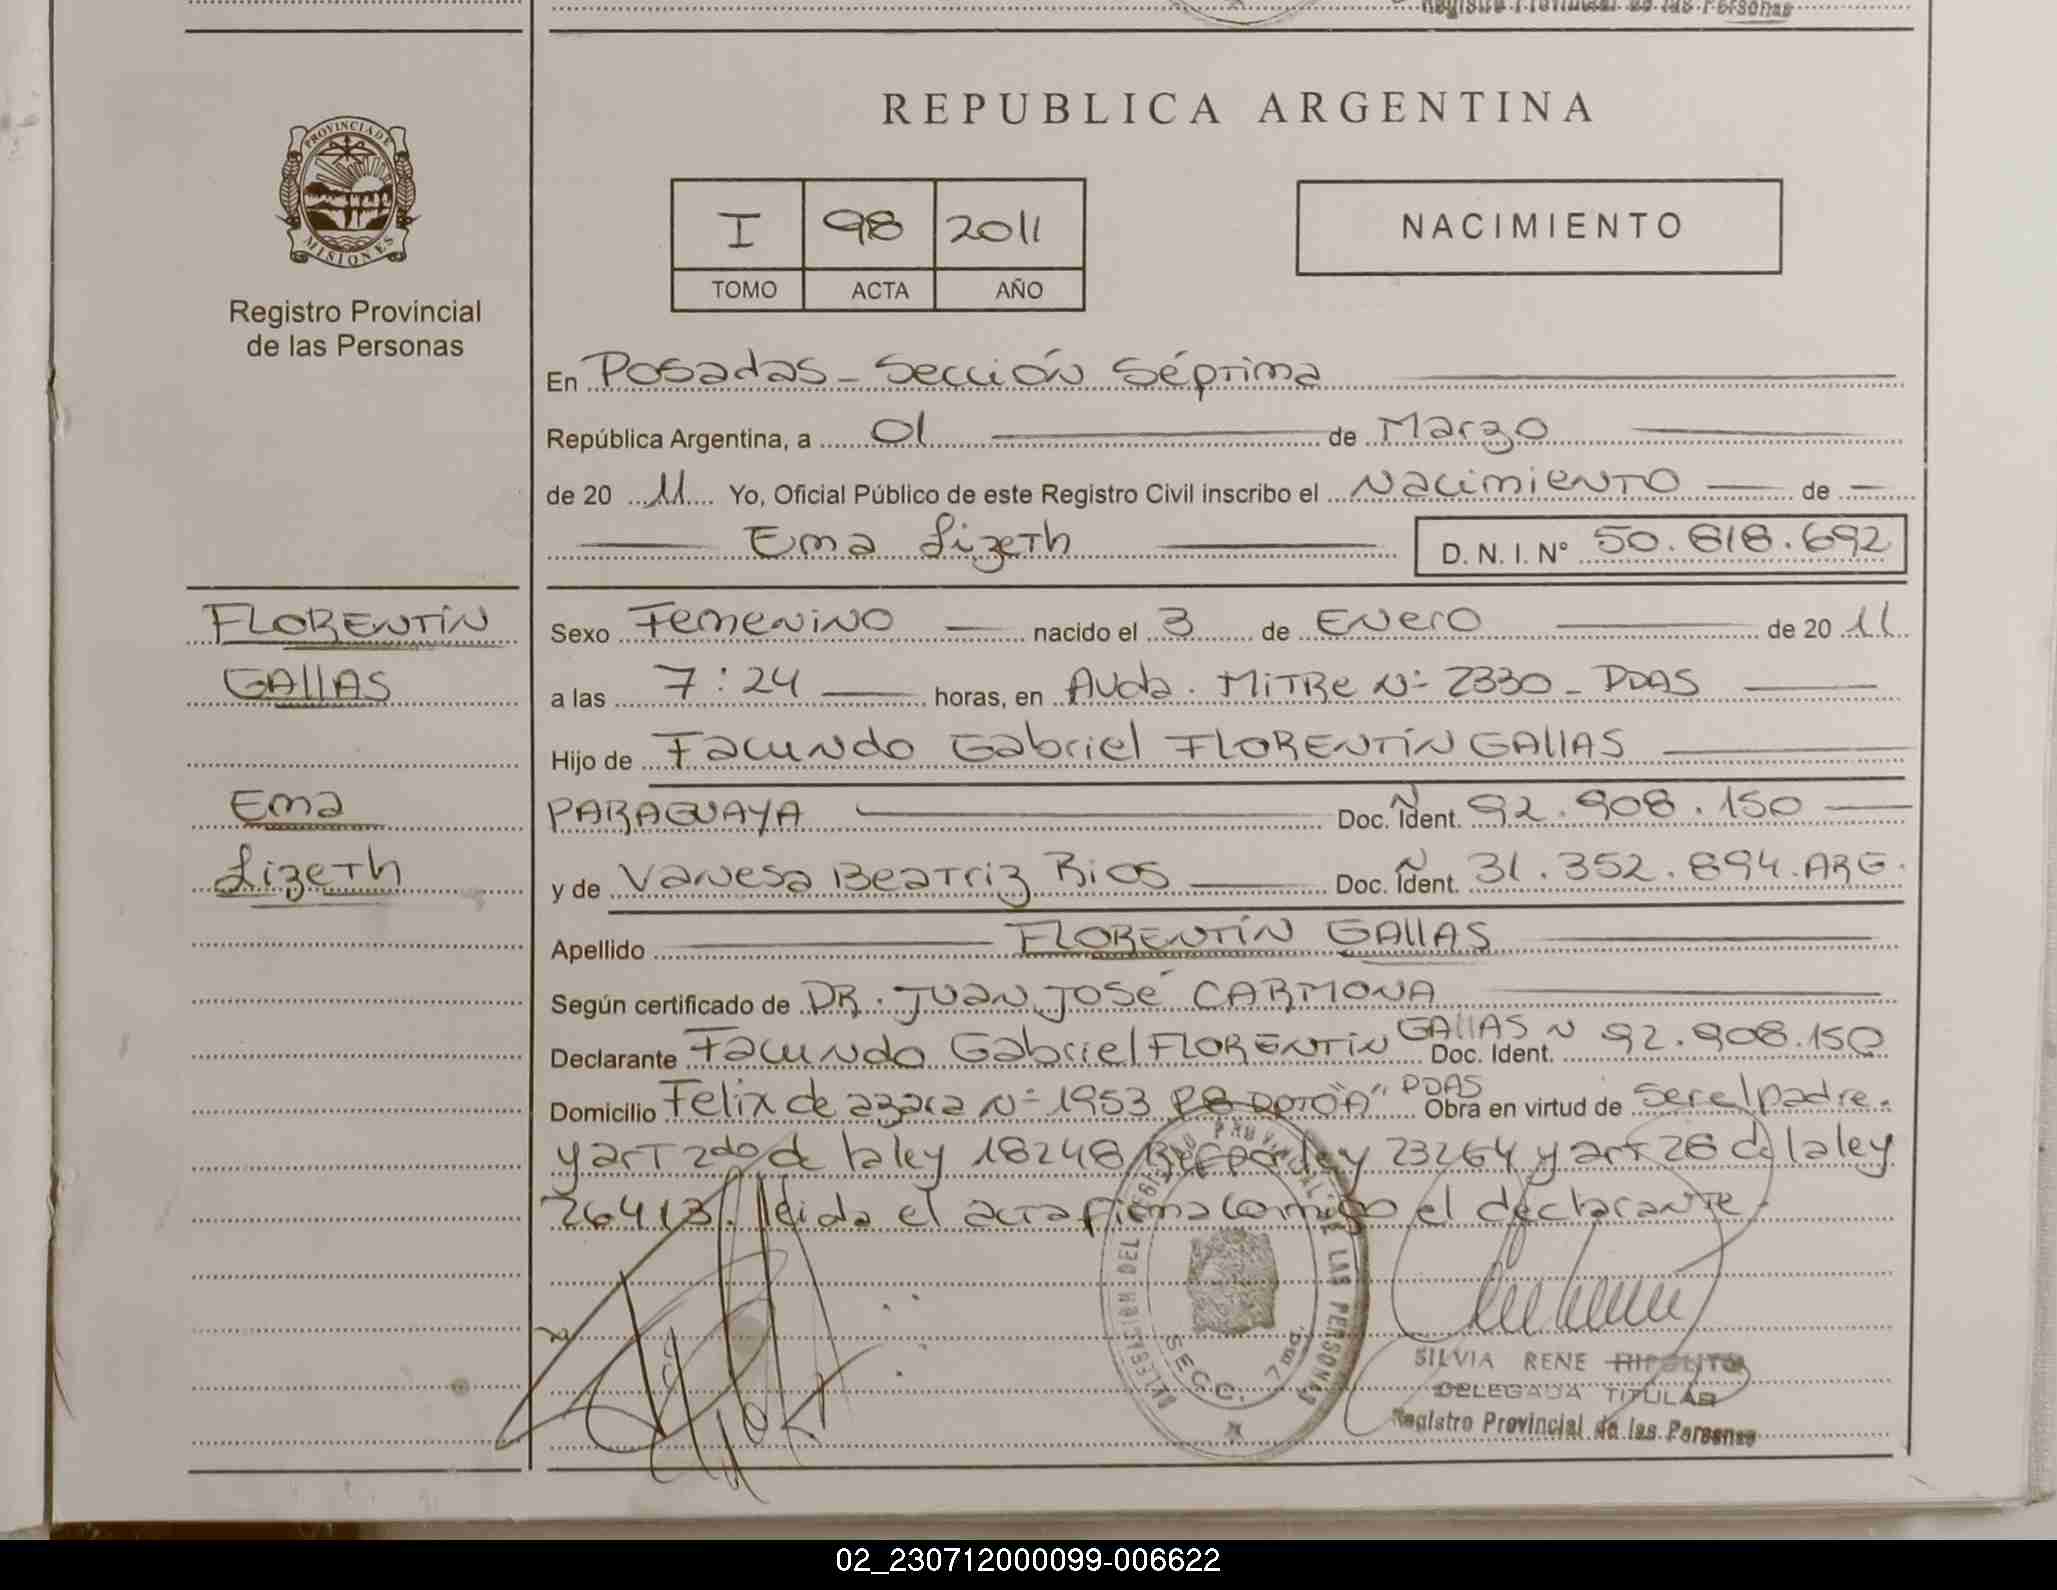 Registro Provincial de las Personas
PROVINCIA DE
MISIONES
Registro Provincial
de las Personas
REPUBLICA ARGENTINA
I 98 2011
TOMO ACTA AÑO
NACIMIENTO
En Posadas - Sección Séptima
República Argentina, a 01 de Marzo
de 20 11 Yo, Oficial Público de este Registro Civil inscribo el Nacimiento de
Ema Lizeth D. N. I. N° 50.818.692
FLORENTÍN
GALLAS
Ema
Lizeth
Sexo Femenino nacido el 3 de Enero de 20 11
a las 7:24 horas, en Avda. Mitre N° 2330 - PDAS
Hijo de Facundo Gabriel FLORENTÍN GALLAS
PARAGUAYA Doc. Ident. N 92.908.150
y de Vanesa Beatriz Rios Doc. Ident. N 31.352.894. ARG.
Apellido FLORENTÍN GALLAS
Según certificado de DR. JUAN JOSÉ CARMONA
Declarante Facundo Gabriel FLORENTÍN GALLAS Doc. Ident. N 92.908.150
Domicilio Felix de azara N° 1953 PB DPTO "A" PDAS Obra en virtud de ser el padre.
y art 2do de la ley 18248 Ref por ley 23264 y art 28 de la ley
26413. leida el acta firma conmigo el declarante.
DELEGACION DEL REGISTRO PROVINCIAL DE LAS PERSONAS
SECC. 7ma.
SILVIA RENE HIPOLITO
DELEGADA TITULAR
Registro Provincial de las Personas
02_230712000099-006622